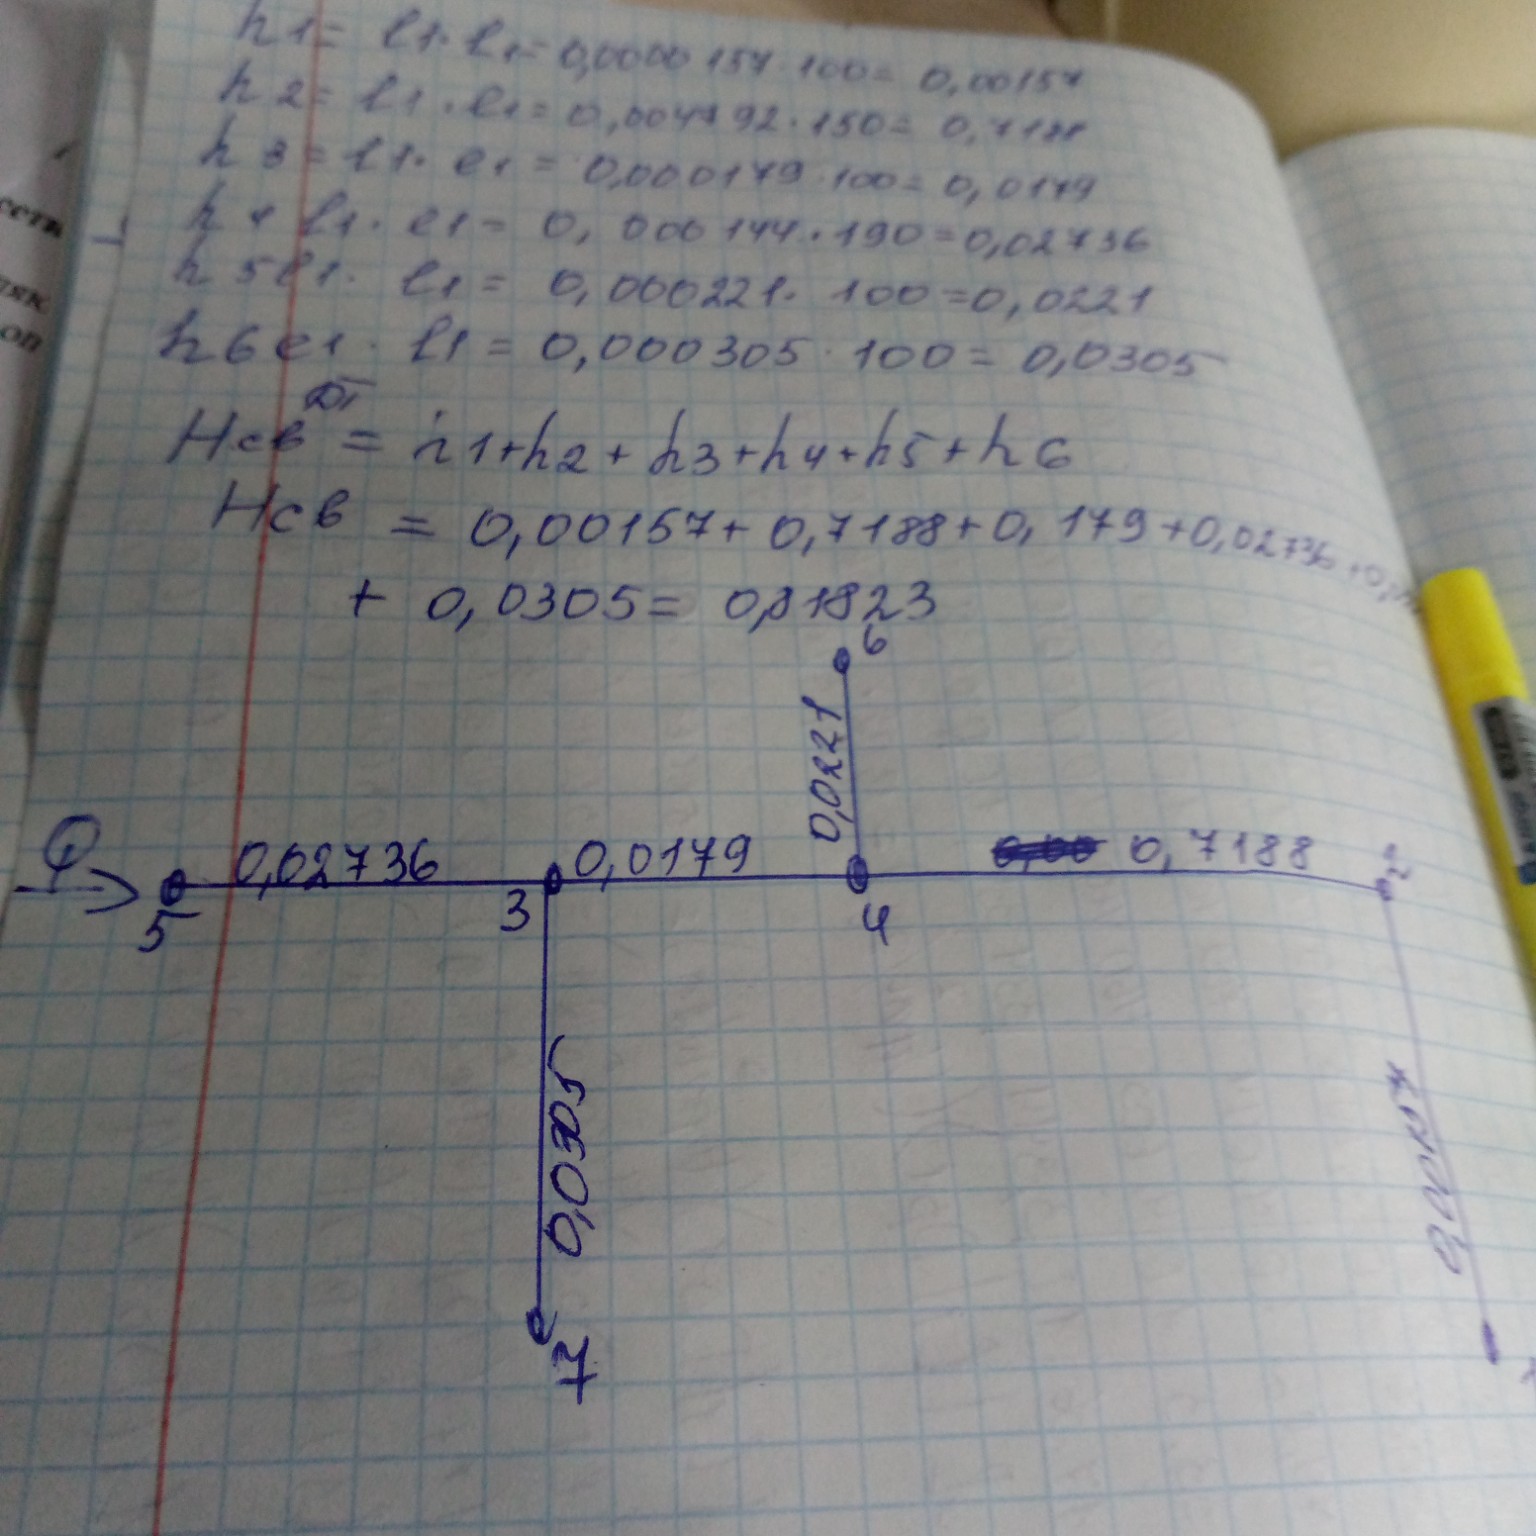 h1= l1·l1= 0,0000157·100= 0,00157
h2= l1·l1= 0,004792·150= 0,7188
h3= l1· l1= 0,000179·100= 0,0179
h4 l1· l1= 0,000144·190=0,02736
h5 l1· l1= 0,000221· 100=0,0221
h6 l1· l1= 0,000305·100= 0,0305
Нсв = h1+h2+h3+h4+h5+h6
Нсв = 0,00157+0,7188+0,179+0,02736+0,
+ 0,0305= 0,81823
6
0,0221
Q
0,02736 0,0179 0,7188 2
5 3 4
0,0305
0,00157
7